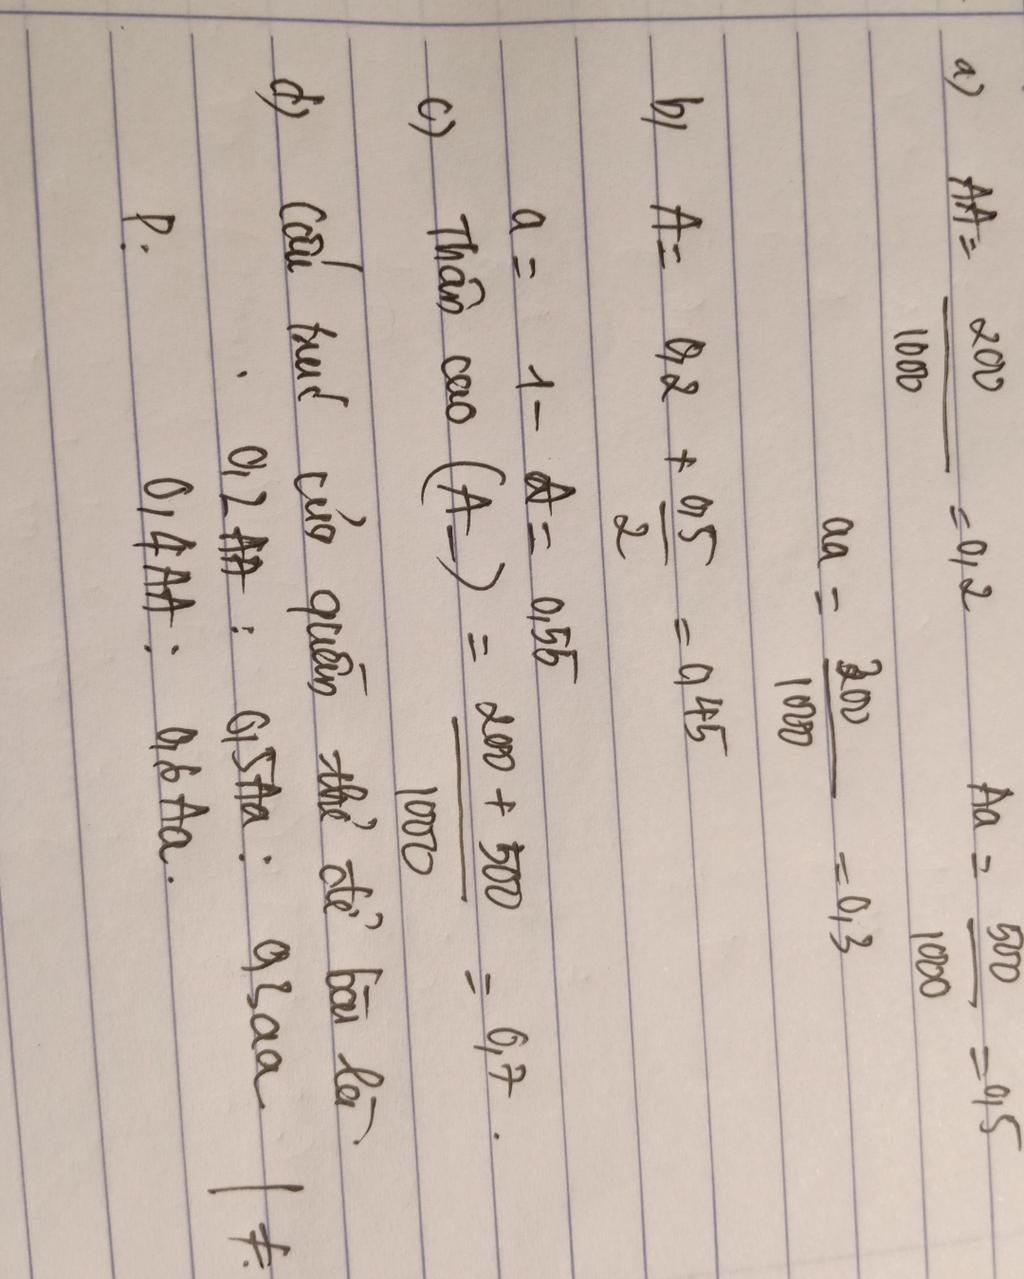 a) AA = 200/1000 = 0,2 Aa = 500/1000 = 0,5
aa = 300/1000 = 0,3
b) A = 0,2 + 0,5/2 = 0,45
a = 1 - A = 0,55
c) Thân cao (A_) = 200 + 500/1000 = 0,7.
d) Cấu trúc của quần thể đề bài là
0,2 AA : 0,5Aa : 0,3aa | ≠.
P: 0,4AA : 0,6Aa.